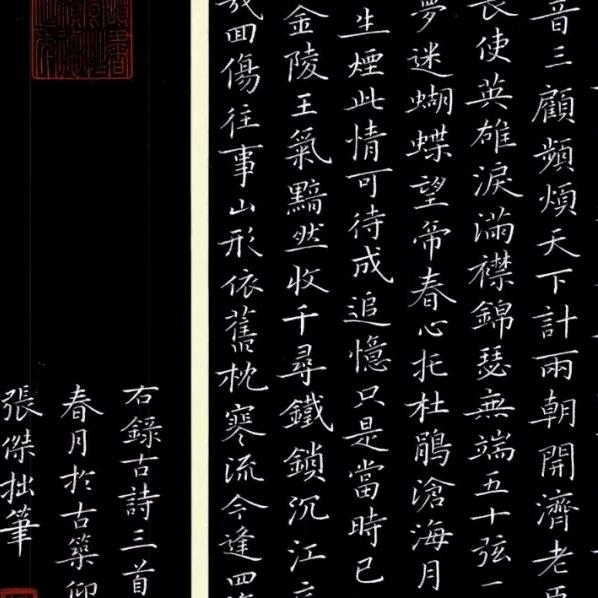 音三顧頻煩天下計兩朝開濟老臣
長使英雄淚滿襟錦瑟無端五十弦一
夢迷蝴蝶望帝春心托杜鵑滄海月
生煙此情可待成追憶只是當時已
金陵王氣黯然收千尋鐵鎖沉江
幾回傷往事山形依舊枕寒流今逢四海
右錄古詩三首
春月於古築仰
張傑拙筆